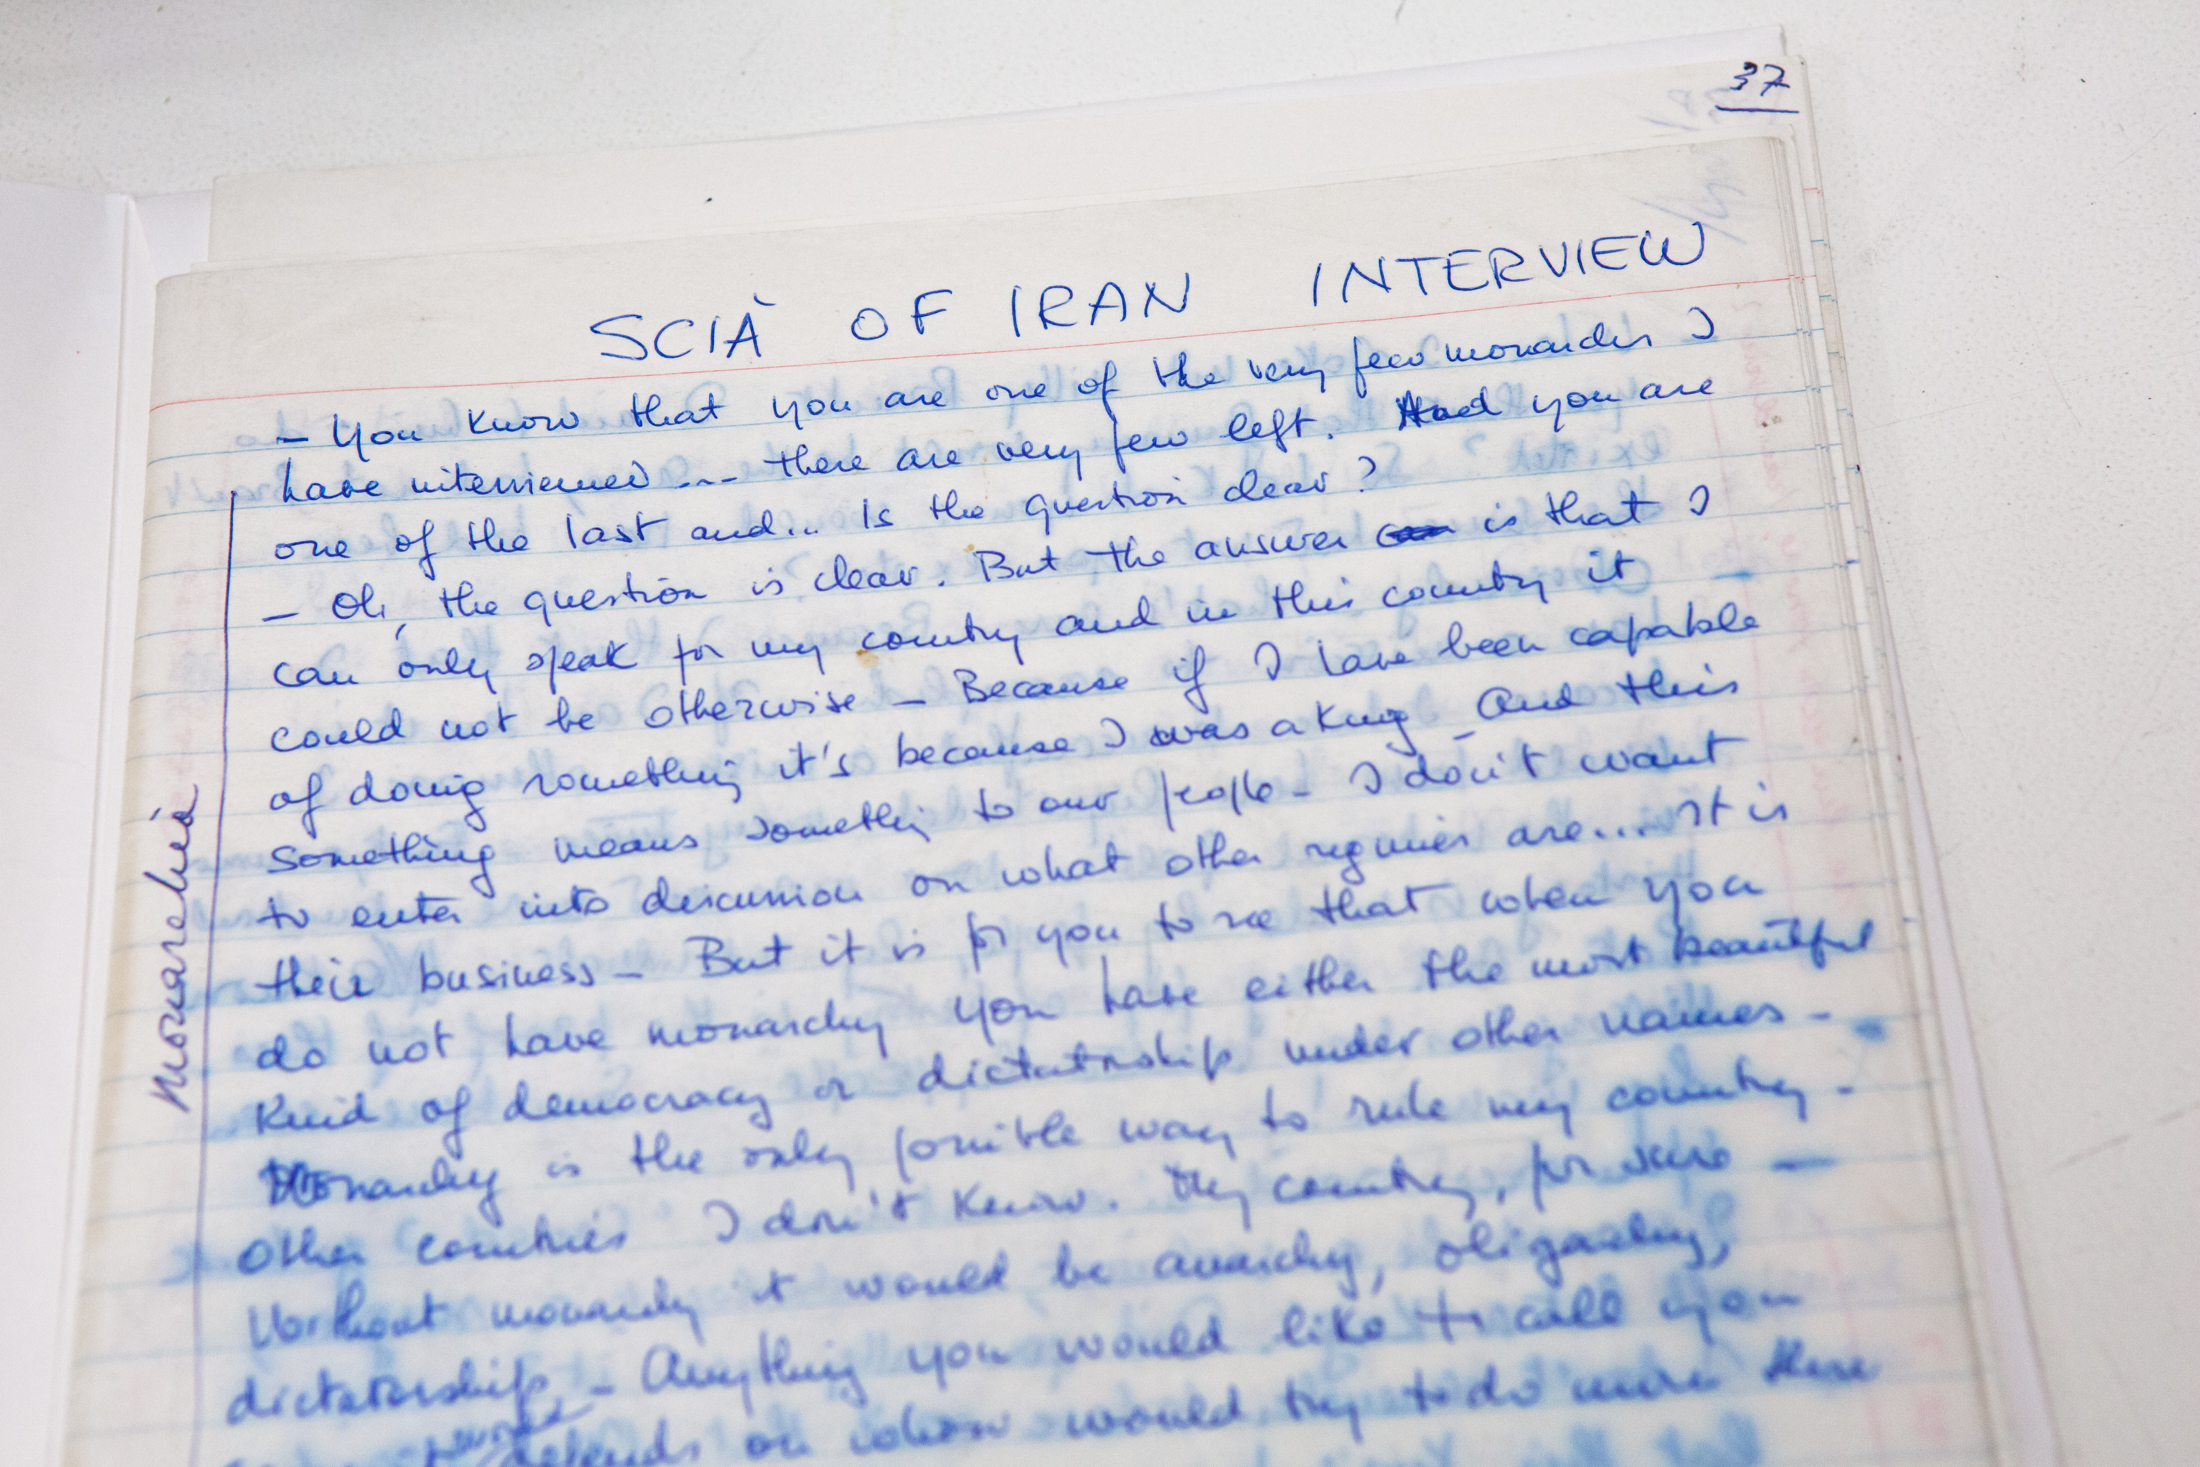 37
SCIÀ OF IRAN INTERVIEW
– You know that you are one of the very few monarchs I
have interviewed --- there are very few left. And you are
one of the last and... Is the question clear?
– Oh, the question is clear. But the answer is that I
can only speak for my country and in this country it
could not be otherwise – Because if I have been capable
of doing something it's because I was a King – And this
something means something to our people – I don't want
to enter into discussion on what other regimes are... It is
their business – But it is for you to see that when you
do not have monarchy you have either the most beautiful
Kind of democracy or dictatorship under other names –
Monarchy is the only possible way to rule my country –
Other countries I don't know. My country, for sure –
Without monarchy it would be anarchy, oligarchy,
dictatorship – Anything you would like to call you
depends on whom would try to do more there
Monarchia